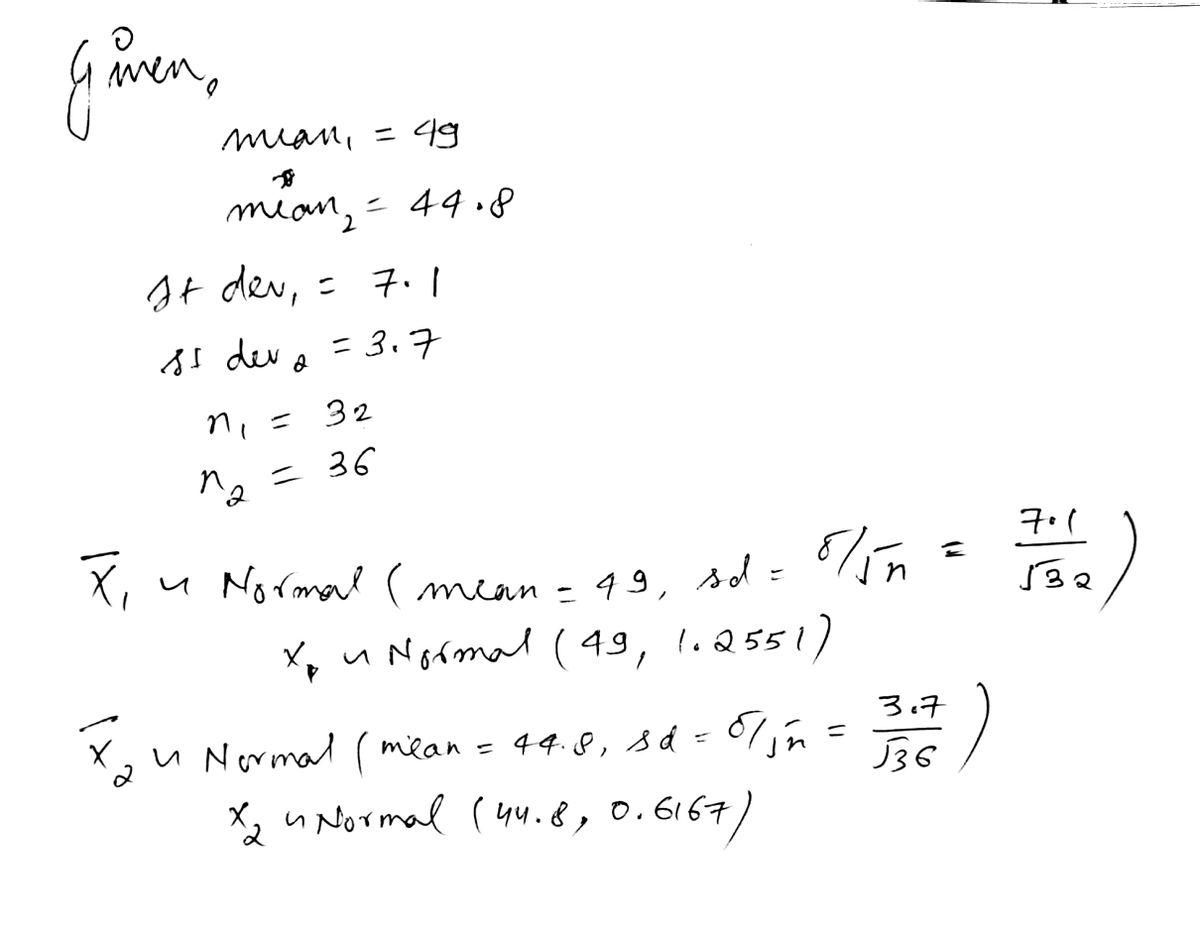 Given,
mean₁ = 49
mean₂ = 44.8
st dev₁ = 7.1
st dev₂ = 3.7
n₁ = 32
n₂ = 36
X̄₁ ~ Normal (mean = 49, sd = σ/√n = 7.1/√32)
X₁ ~ Normal (49, 1.2551)
X̄₂ ~ Normal (mean = 44.8, sd = σ/√n = 3.7/√36)
X₂ ~ Normal (44.8, 0.6167)